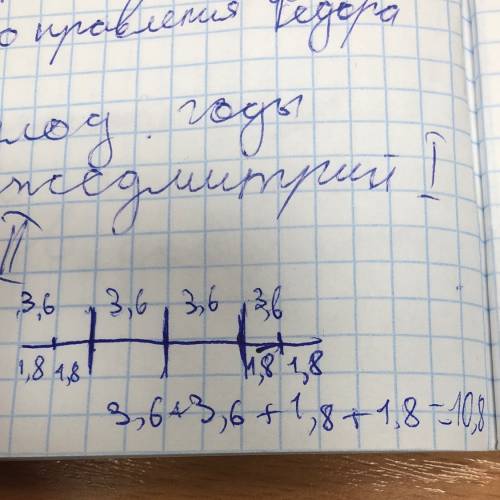 о правления Федора
лод. годы
жедмитрий I
II
3,6 3,6 3,6 3,6
1,8 1,8 1,8 1,8
3,6+3,6+1,8+1.8=10,8